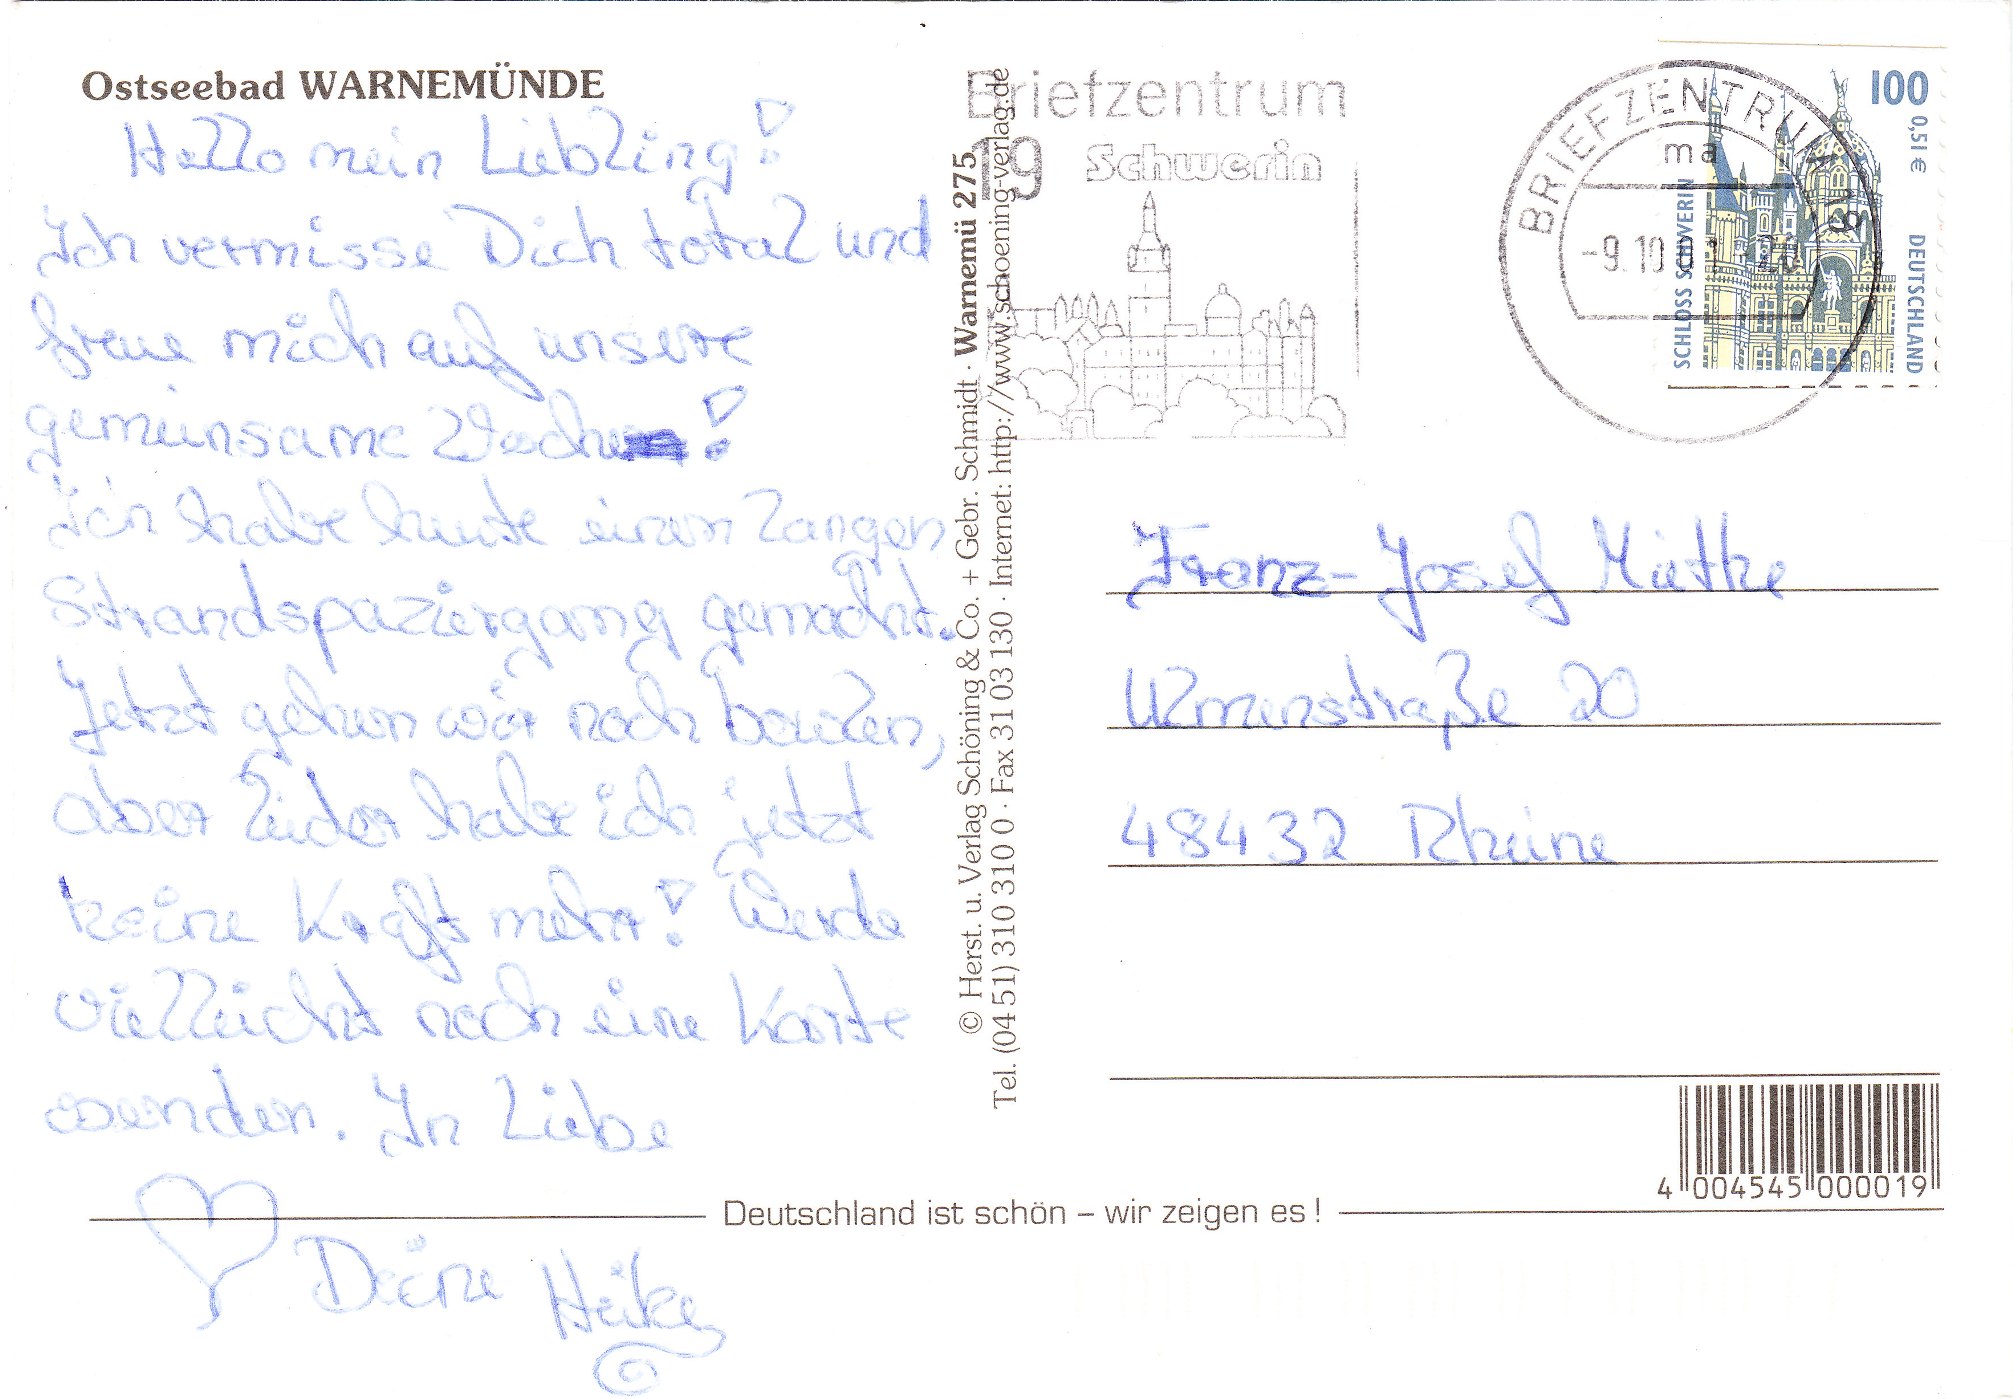 Ostseebad WARNEMÜNDE
Hallo mein Liebling!
Ich vermisse Dich total und
freue mich auf unsere
gemeinsame Woche!
Ich habe heute einen langen
Strandspaziergang gemacht.
Jetzt gehen wir noch bowlen,
aber leider habe ich jetzt
keine Kraft mehr! Werde
vielleicht noch eine Karte
senden. In Liebe
Deine Heike
© Herst. u. Verlag Schöning & Co. + Gebr. Schmidt · Warnemü 275
Tel. (04 51) 3 10 3 10 0 · Fax 31 03 130 · Internet: http://www.schoening-verlag.de
Briefzentrum
19
Schwerin
BRIEFZENTRUM 19
ma
-9.10.01
100
0,51 €
DEUTSCHLAND
SCHLOSS SCHWERIN
Franz-Josef Miethe
Ulmenstraße 20
48432 Rheine
4 004545 000019
Deutschland ist schön – wir zeigen es!